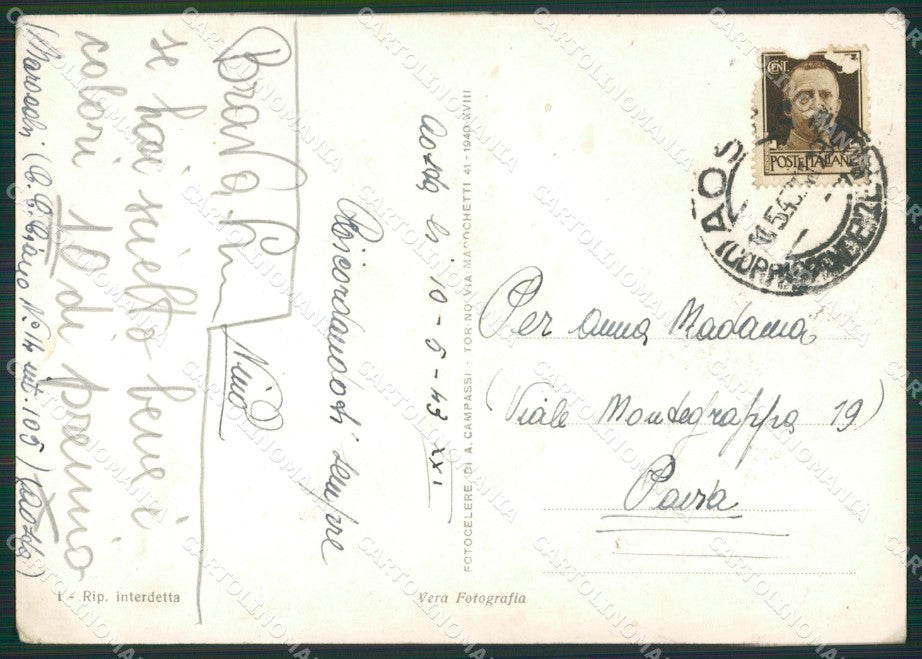 CENT.
POSTE ITALIANE
AOSTA
10.5.43
(CORRISPONDENZE
Per Anna Madama
(Viale Montegrappa 19)
Pavia
Aosta li 10-5-43 XXI
Ricordandoti sempre
Nino
Brava
se hai scritto bene i
colori 10 di premio
N. 14 int. 105) Aosta)
FOTOCELERE DI A. CAMPASSI - TORINO VIA MAROCHETTI 41 - 1940-XVIII
1 - Rip. interdetta
Vera Fotografia
CARTOLINOMANIA